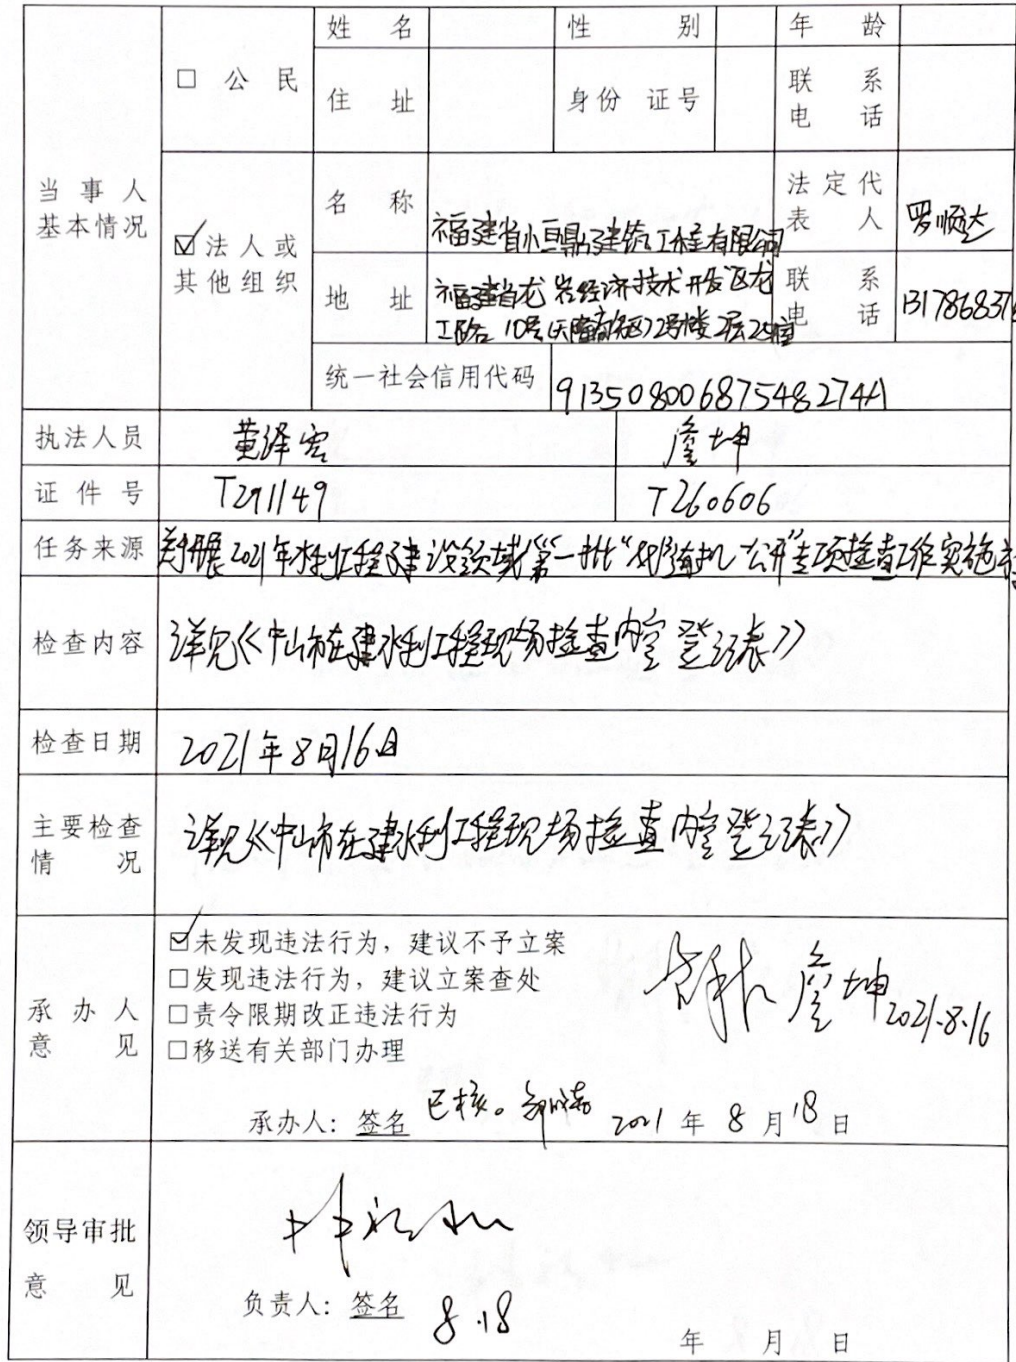 当事人
基本情况
□ 公民
姓名
性别
年龄
住址
身份证号
联系
电话
☑法人或
其他组织
名称
福建省小亘鼎建筑工程有限公司
法定代
表人
罗顺达
地址
福建省龙岩经济技术开发区龙
工路10号 2号楼2层
联系
电话
1317868376
统一社会信用代码
91350800687548274A
执法人员
黄泽宏
詹坤
证件号
T291149
T260606
任务来源
关于开展2021年水利工程建设领域(第一批"双随机一公开"专项检查工作实施
检查内容
详见《中山市在建水利工程现场检查内容登记表》
检查日期
2021年8月16日
主要检查
情况
详见《中山市在建水利工程现场检查内容登记表》
承办人
意见
☑未发现违法行为，建议不予立案
□发现违法行为，建议立案查处
□责令限期改正违法行为
□移送有关部门办理
詹坤 2021.8.16
承办人：签名 已核。 2021年8月18日
领导审批
意见
负责人：签名 8.18
年月日